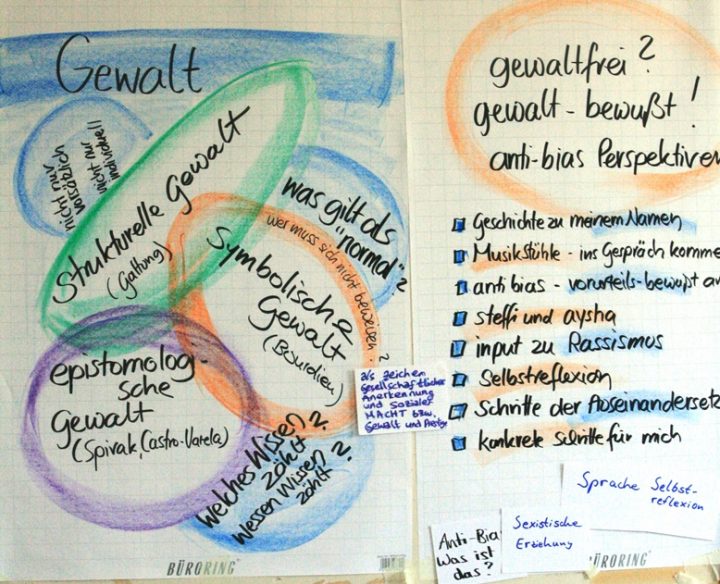 Gewalt
nicht nur
vorsätzlich
nicht nur
individuell
Strukturelle Gewalt
(Galtung)
was gilt als
"normal"?
wer muss sich nicht beweisen?
Symbolische
Gewalt
(Bourdieu)
epistomolog-
sche
Gewalt
(Spivak Castro-Varela)
welches Wissen
zählt?
Wessen Wissen
zählt?
als Zeichen
Gesellschaftlicher
Anerkennung
und Sozialer
MACHT bzw.
Gewalt und Prestige
BÜRORING
gewaltfrei?
gewalt-bewußt!
anti-bias Perspektiven
Geschichte zu meinem Namen
Musikstühle - ins Gespräch komme
anti bias - vorurteils-bewußt
steffi und aysha
input zu Rassismus
Selbstreflexion
Schritte der Auseinanderset
konkrete Schritte für mich
Sprache Selbst-
reflexion
Sexistische
Erziehung
Anti-Bia
Was ist
das?
BÜRORING